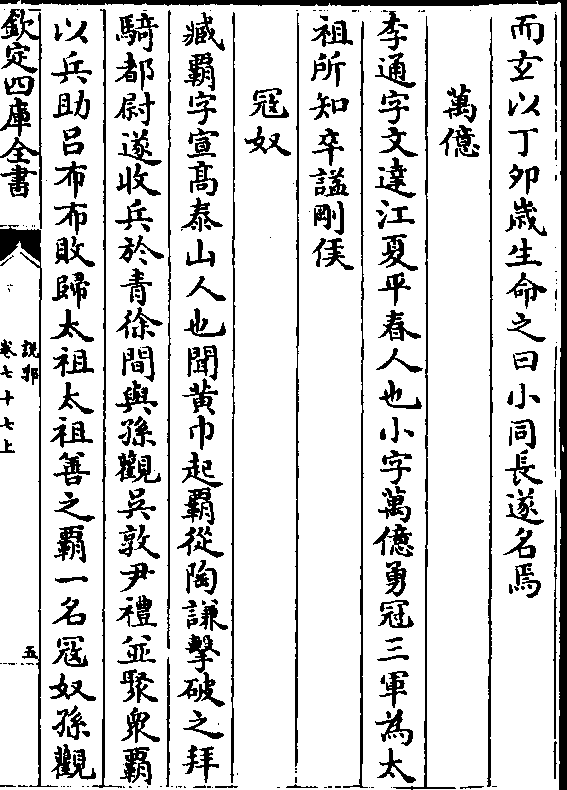 而玄以丁夘歳生命之曰小同長遂名焉
萬億
李通字文達江夏平春人也小字萬億勇冠三軍為太
祖所知卒謚剛侯
冦奴
臧霸字宣髙泰山人也聞黄巾起霸從陶謙擊破之拜
騎都尉遂收兵於青徐間與孫觀吳敦尹禮並聚衆霸
以兵助呂布布敗歸太祖太祖善之霸一名冦奴孫觀
欽定四庫全書
説郛
卷七十七上
五